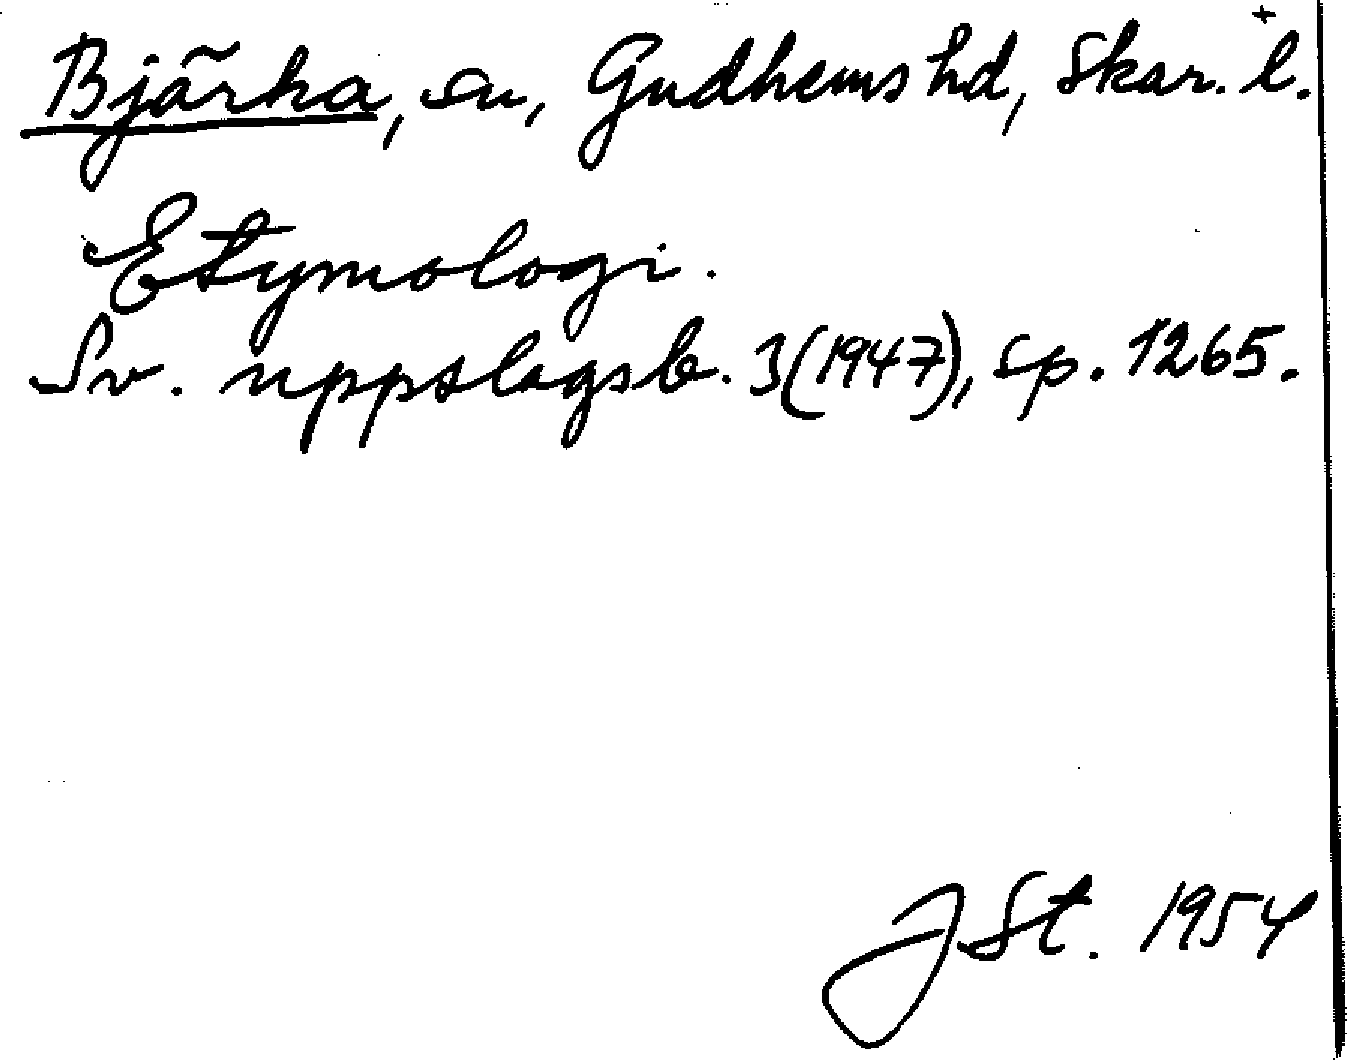 Bjärka, sn, Gudhems hd, Skar. l. +
Etymologi.
Sv. uppslagsb. 3(1947), sp. 1265.
JSt. 1954